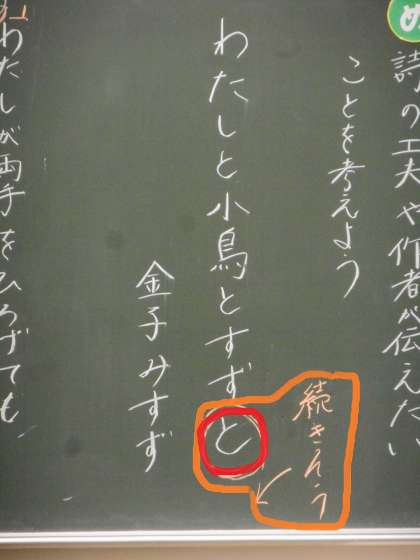 め
詩の工夫や作者が伝えたい
ことを考えよう
わたしと小鳥とすずと
続きそう
金子みすず
わたしが両手をひろげても